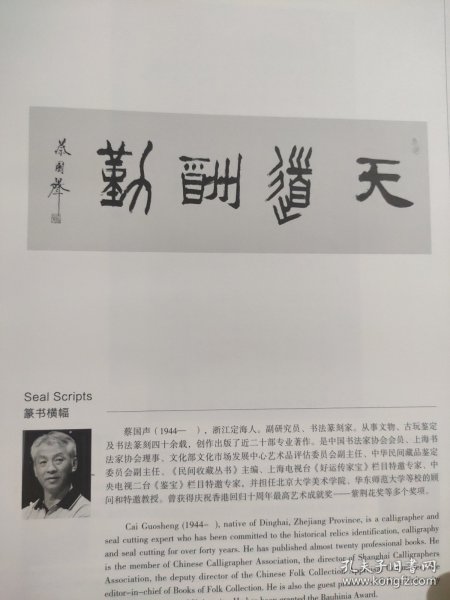 天道酬勤
蔡国声
Seal Scripts
篆书横幅
蔡国声（1944— ），浙江定海人。副研究员、书法篆刻家。从事文物、古玩鉴定
及书法篆刻四十余载，创作出版了近二十部专业著作。是中国书法家协会会员、上海书
法家协会理事、文化部文化市场发展中心艺术品评估委员会副主任、中华民间藏品鉴定
委员会副主任、《民间收藏丛书》主编、上海电视台《好运传家宝》栏目特邀专家、中
央电视二台《鉴宝》栏目特邀专家，并担任北京大学美术学院、华东师范大学等校的顾
问和特邀教授。曾获得庆祝香港回归十周年最高艺术成就奖——紫荆花奖等多个奖项。
Cai Guosheng (1944– ), native of Dinghai, Zhejiang Province, is a calligrapher and
seal cutting expert who has been committed to the historical relics identification, calligraphy
and seal cutting for over forty years. He has published almost twenty professional books. He
is the member of Chinese Calligrapher Association, the director of Shanghai Calligraphers
Association, the deputy director of the Chinese Folk Collection
editor-in-chief of Books of Folk Collection. He is also the guest
been granted the Bauhinia Award.
孔夫子旧书网